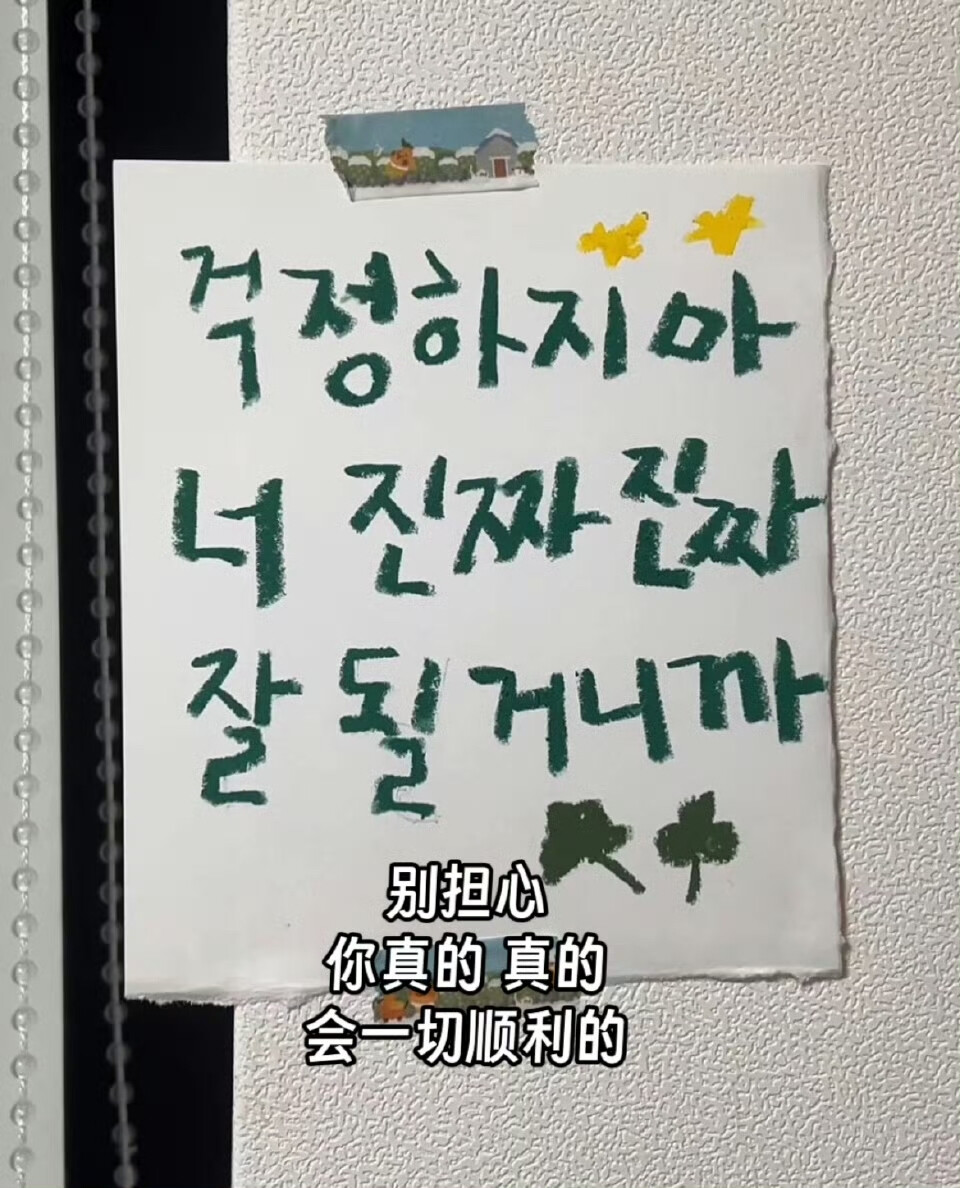 걱정하지 마
너 진짜 진짜
잘 될 거니까
别担心
你真的 真的
会一切顺利的